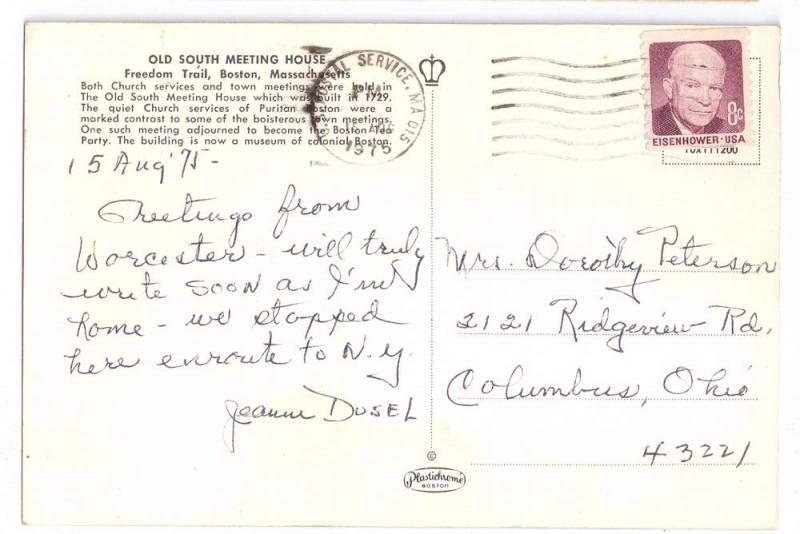 OLD SOUTH MEETING HOUSE
Freedom Trail, Boston, Massachusetts
Both Church services and town meetings were held in
The Old South Meeting House which was built in 1729.
The quiet Church services of Puritan Boston were a
marked contrast to some of the boisterous town meetings.
One such meeting adjourned to become the Boston Tea
Party. The building is now a museum of colonial Boston.
POSTAL SERVICE, MA 015
1975
8c
EISENHOWER·USA
15 Aug '75-
Greetings from
Worcester - will truly
write soon as I'm
home - we stopped
here enroute to N.Y.
Jeanne DUSEL
Mrs. Dorothy Peterson
2121 Ridgeview Rd.
Columbus, Ohio
43221
©
Plastichrome
BOSTON